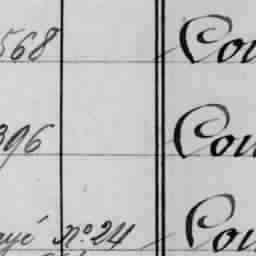 568 Cou
396 Cou
ayé nº 24 Cou